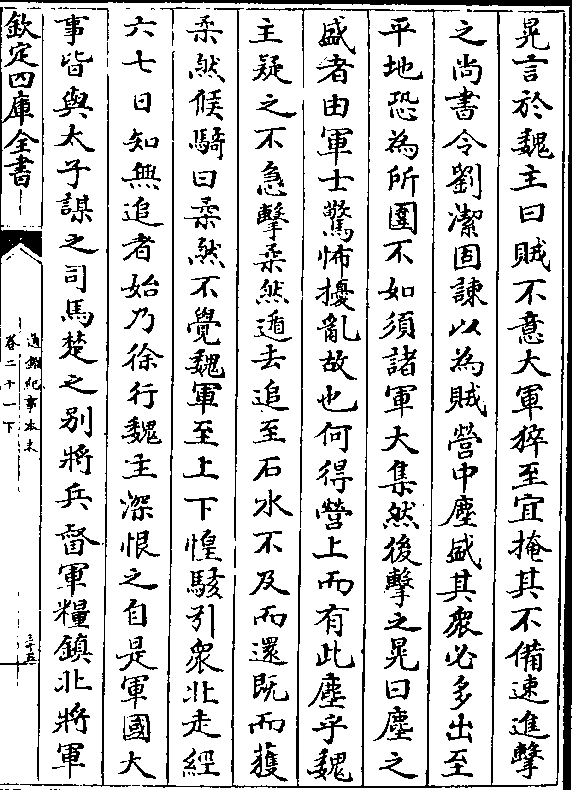 晃言於魏主曰賊不意大軍猝至宜掩其不備速進擊
之尚書令劉潔固諫以為賊營中塵盛其衆必多出至
平地恐為所圍不如須諸軍大集然後擊之晃曰塵之
盛者由軍士驚怖擾亂故也何得營上而有此塵乎魏
主疑之不急擊柔然遁去追至石水不及而還既而獲
柔然候騎曰柔然不覺魏軍至上下惶駭引衆北走經
六七日知無追者始乃徐行魏主深恨之自是軍國大
事皆與太子謀之司馬楚之别將兵督軍糧鎮北將軍
欽定四庫全書
通鑑紀事本末
卷二十一下
三十五